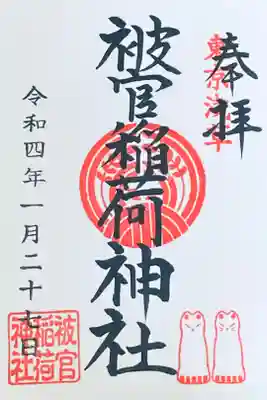 奉拝
東京浅草
被官稲荷神社
令和四年一月二十七日
被官
稲荷
神社